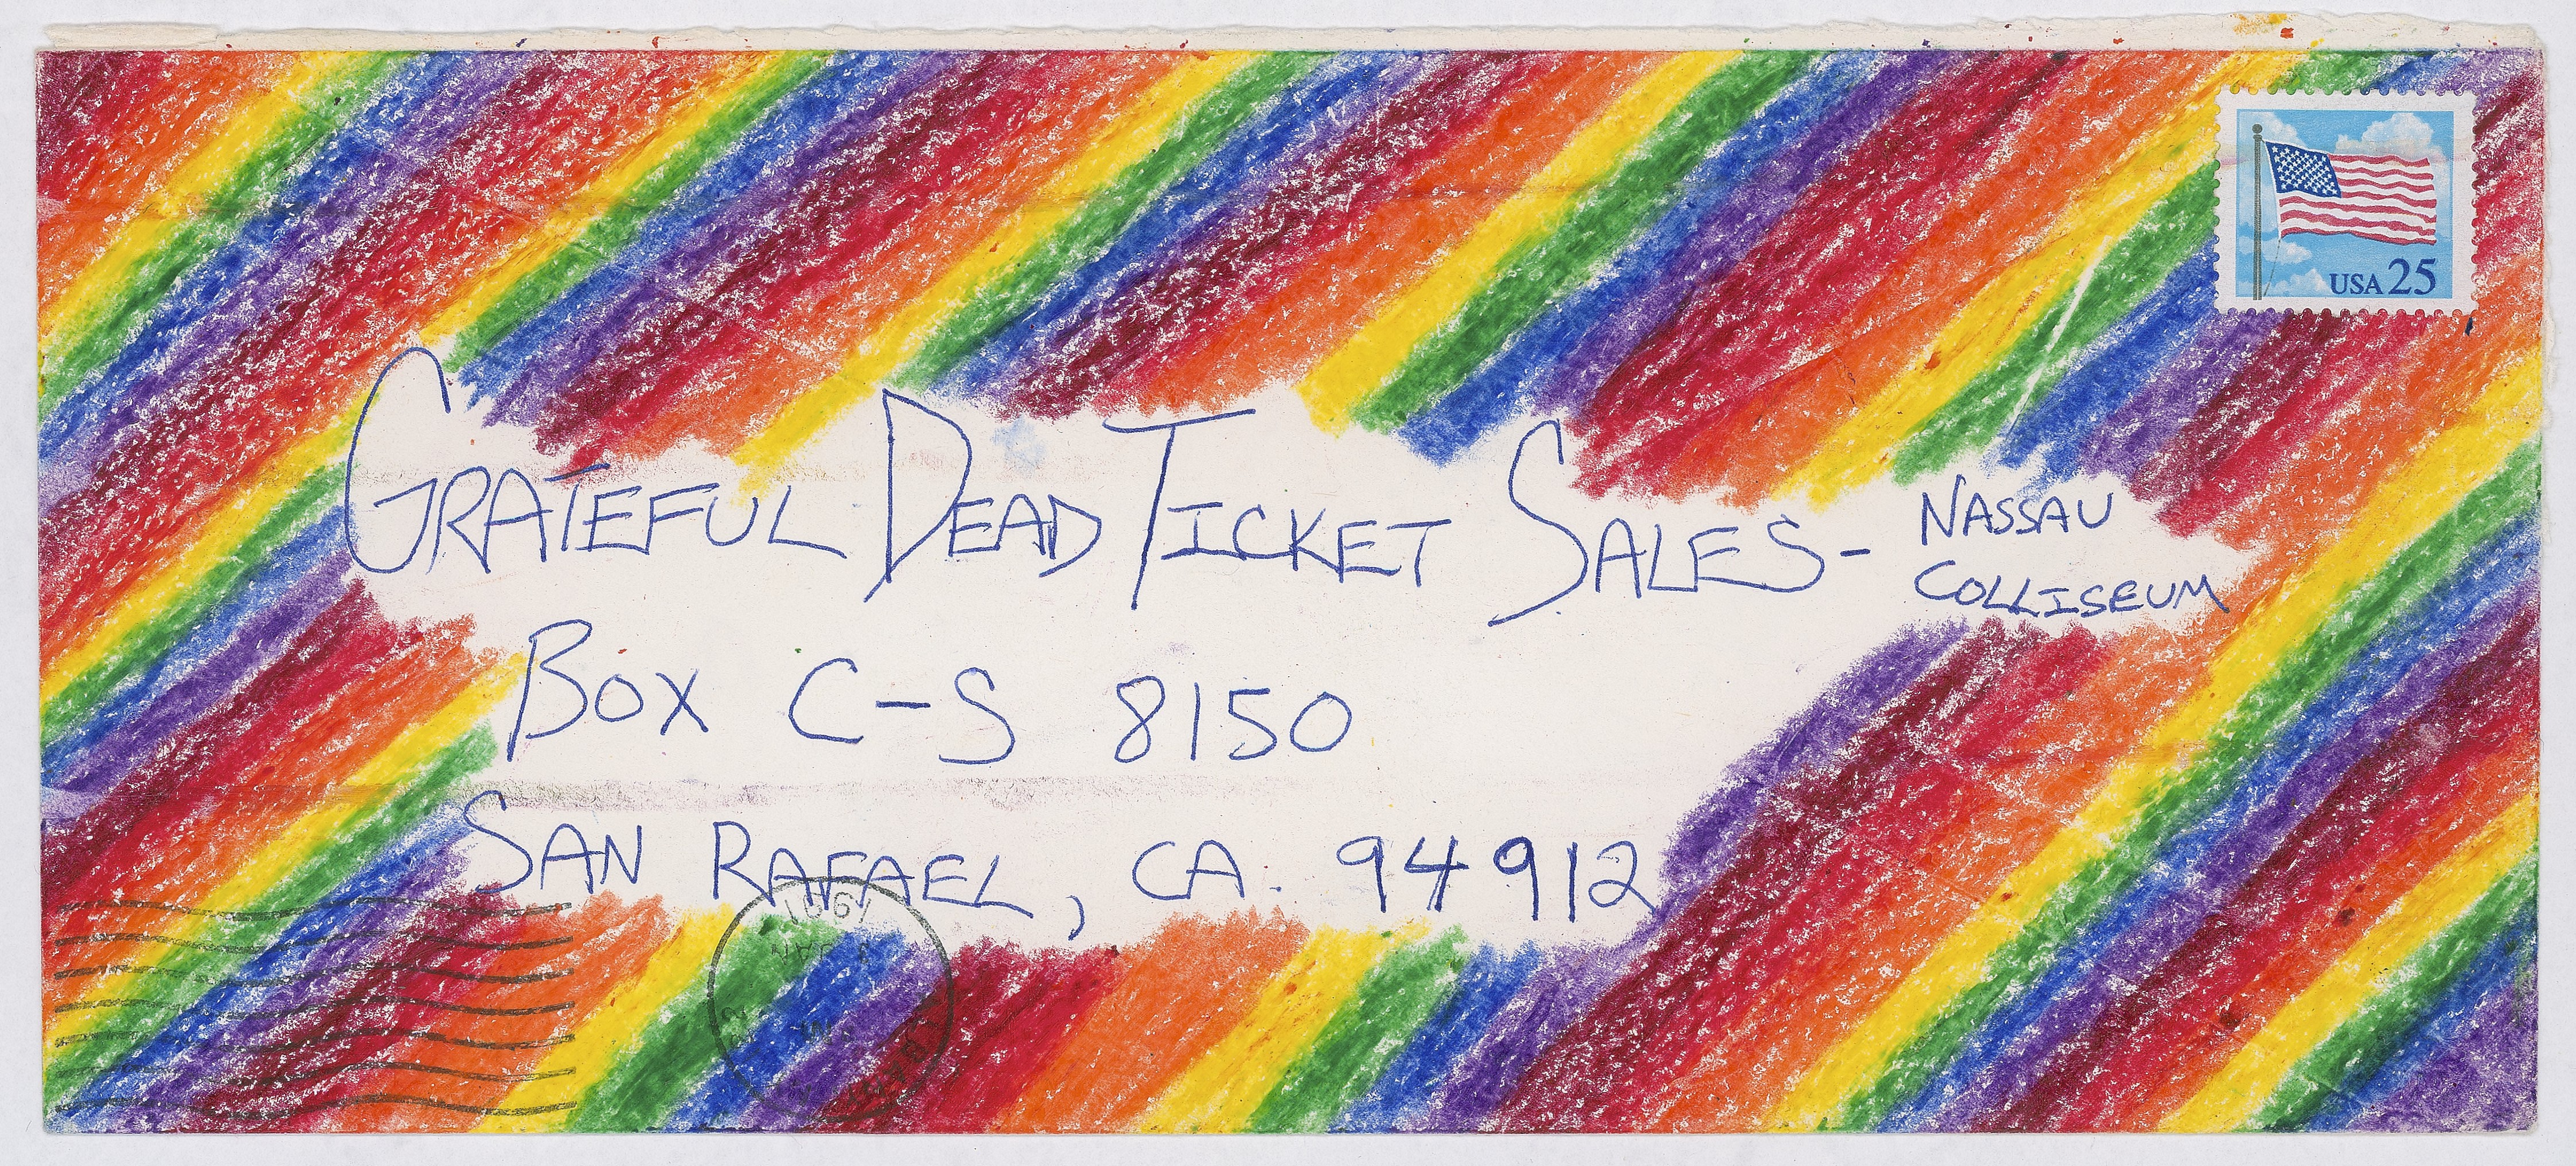 USA 25
GRATEFUL DEAD TICKET SALES- NASSAU
COLLISEUM
BOX C-S 8150
SAN RAFAEL, CA. 94912
1991
JAN
PM